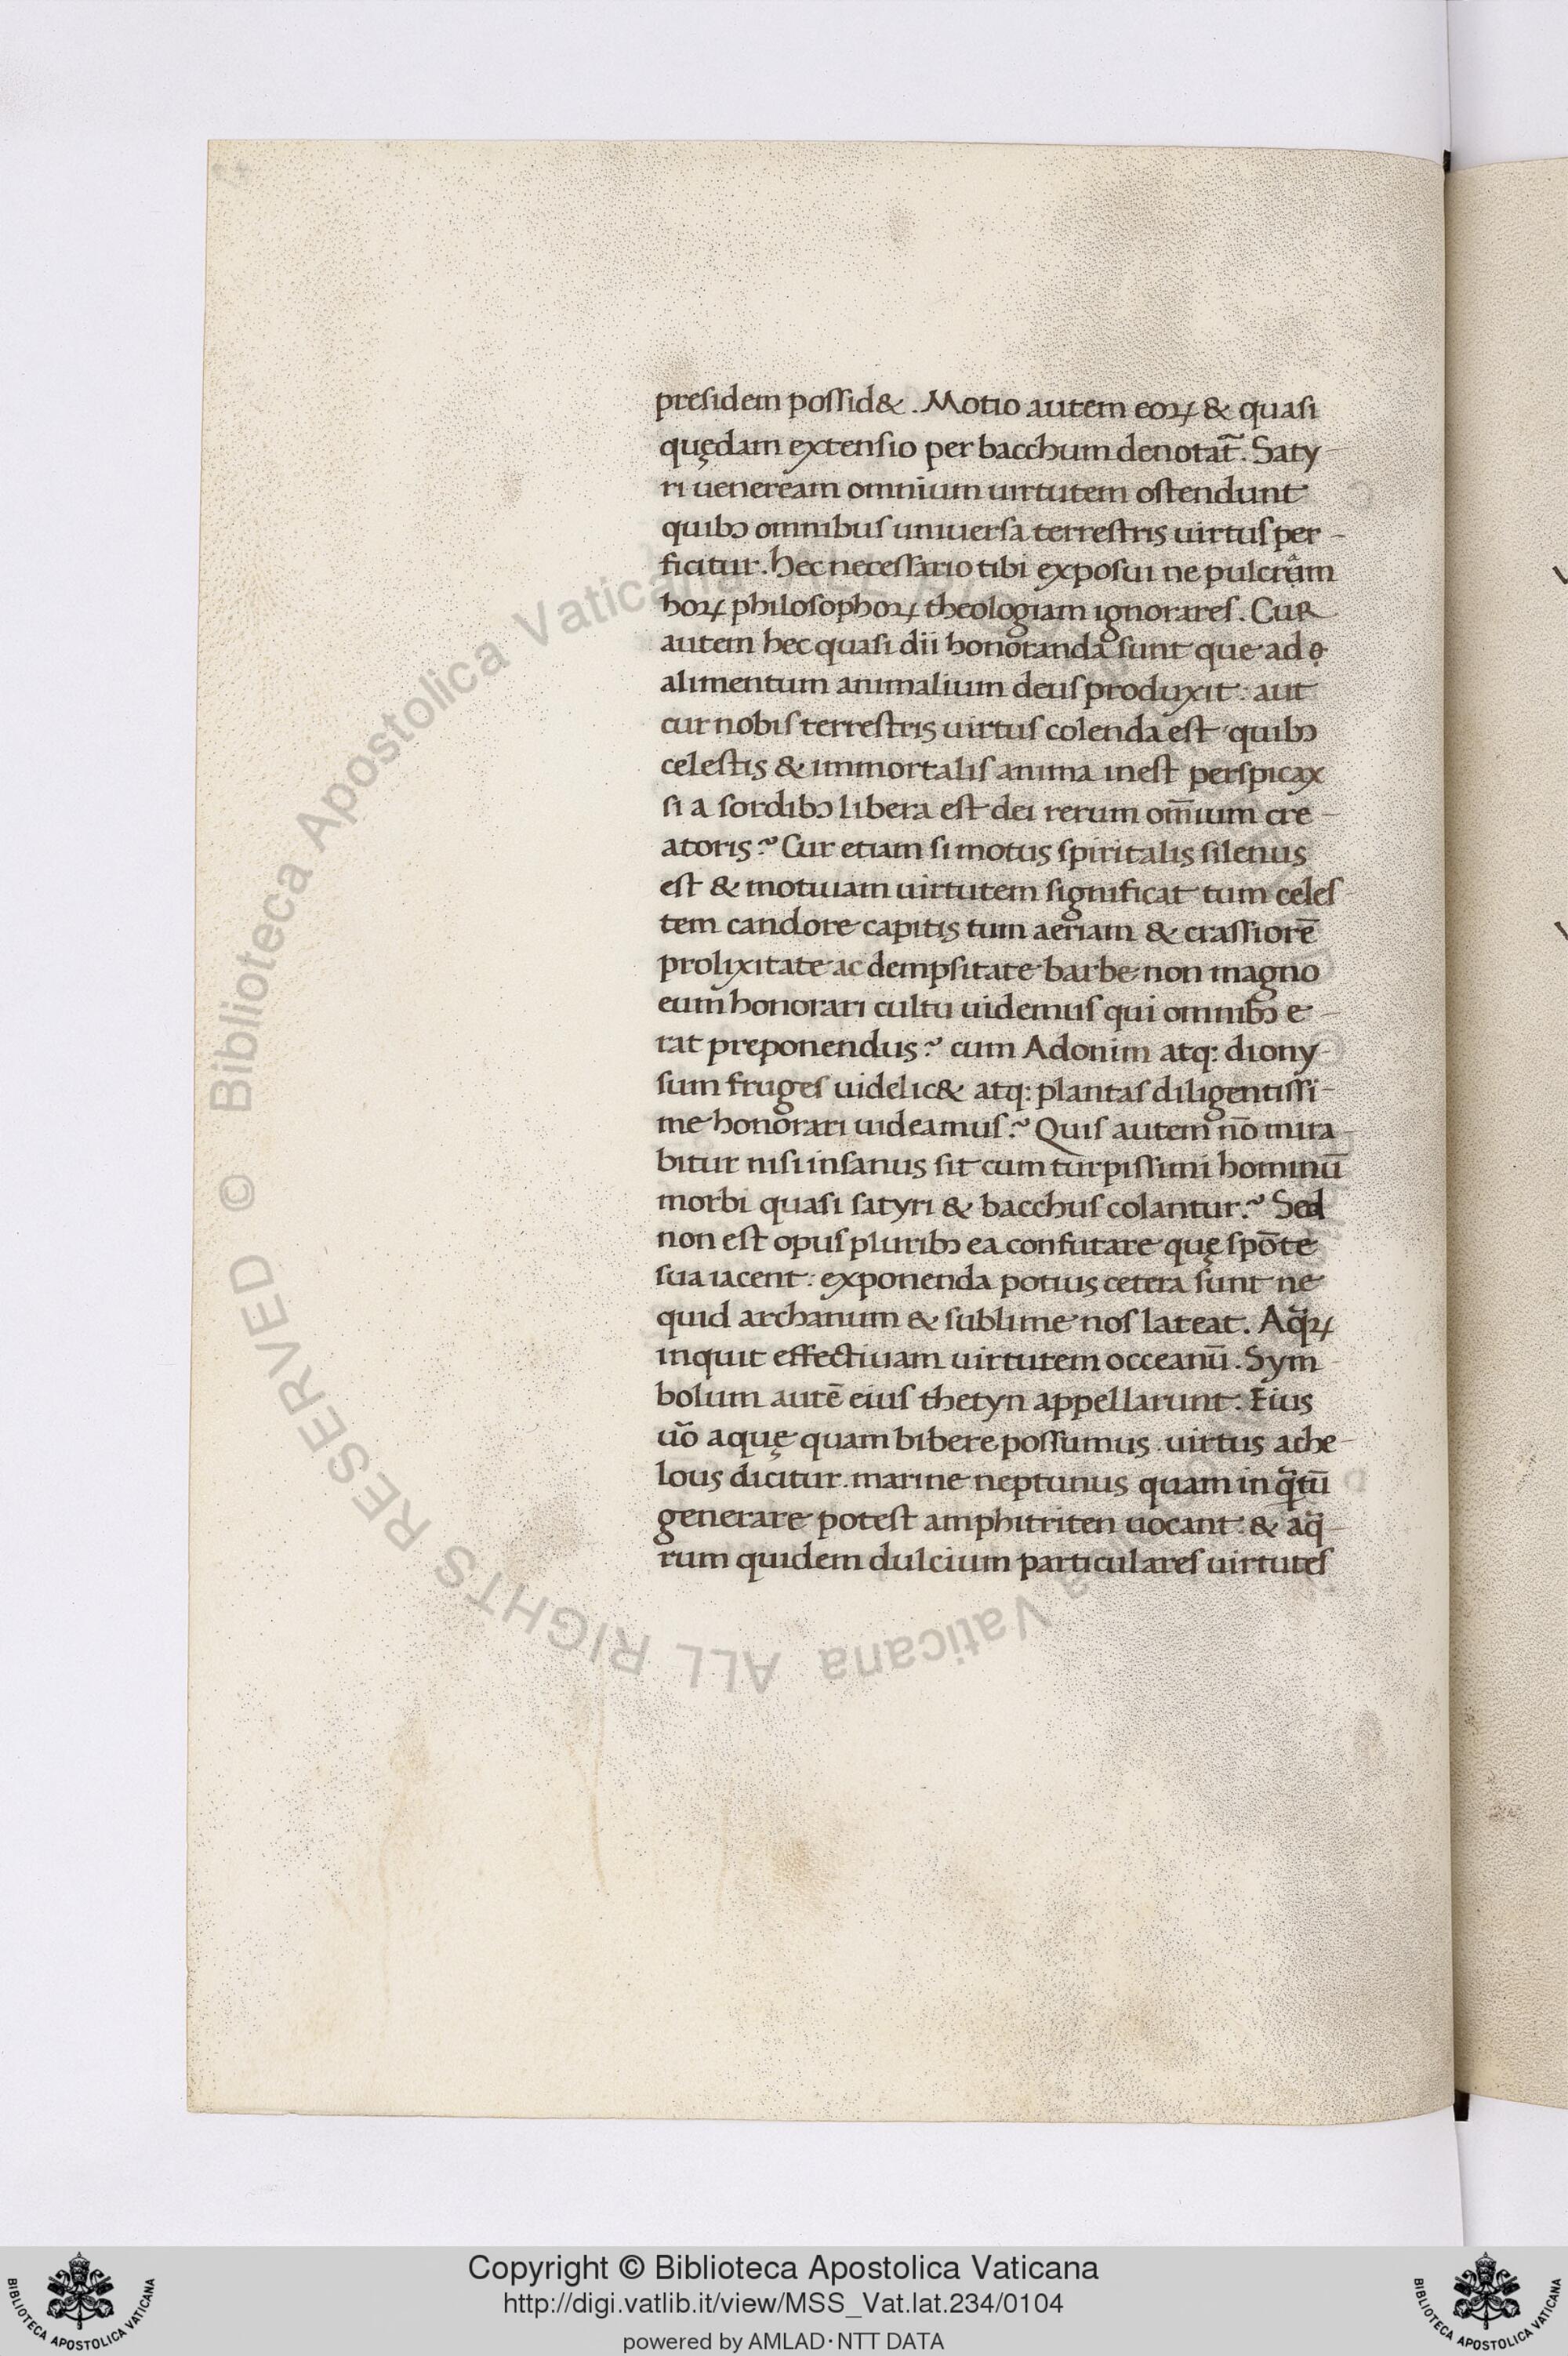 presidem possid&. Motio autem eoꝝ & quasi
quędam extensio per bacchum denotat̃. Saty-
ri ueneream omnium uirtutem ostendunt
quibꝯ omnibus uniuersa terrestris uirtus per-
ficitur. Hec necessario tibi exposui ne pulcram
hoꝝ philosophoꝝ theologiam ignorares. Cur
autem hec quasi dii honoranda sunt que ad
alimentum animalium deus produxit: aut
cur nobis terrestris uirtus colenda est quibꝯ
celestis & immortalis anima inest perspicax
si a sordibꝯ libera est dei rerum om̄ium cre-
atoris? Cur etiam si motus spiritalis silenus
est & motiuam uirtutem significat tum celes-
tem candore capitis tum aeriam & crassiorē
prolixitate ac dempsitate barbe non magno
eum honorari cultu uidemus qui omnibꝯ e-
rat preponendus? cum Adonim atq: diony-
sum fruges uidelic& atq: plantas diligentissi-
me honorari uideamus? Quis autem nō mira-
bitur nisi insanus sit cum turpissimi hominū
morbi quasi satyri & bacchus colantur? Sed
non est opus pluribꝯ ea confutare quę spōte
sua iacent: exponenda potius cetera sunt ne
quid archanum & sublime nos lateat. Aq̃ꝝ
inquit effectiuam uirtutem occeanū. Sym-
bolum autē eius thetyn appellarunt. Eius
uō aquę quam bibere possumus uirtus ache-
lous dicitur. marine neptunus quam in q̃tū
generare potest amphitriten uocant: & aq̃-
rum quidem dulcium particulares uirtutes
© Biblioteca Apostolica Vaticana ALL RIGHTS RESERVED
Copyright © Biblioteca Apostolica Vaticana
http://digi.vatlib.it/view/MSS_Vat.lat.234/0104
powered by AMLAD·NTT DATA
BIBLIOTECA APOSTOLICA VATICANA
BIBLIOTECA APOSTOLICA VATICANA